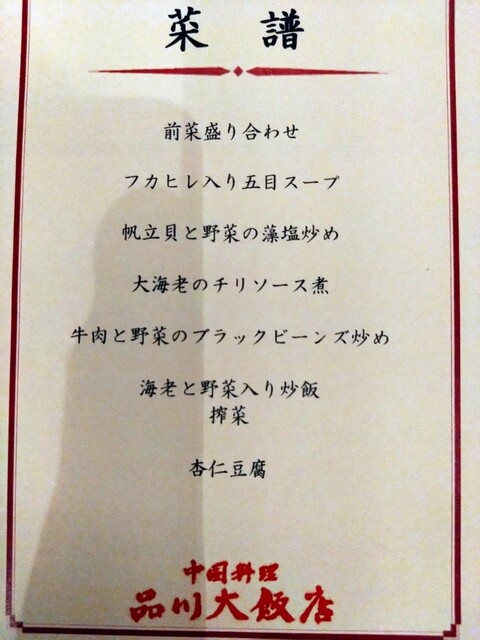 菜 譜
前菜盛り合わせ
フカヒレ入り五目スープ
帆立貝と野菜の藻塩炒め
大海老のチリソース煮
牛肉と野菜のブラックビーンズ炒め
海老と野菜入り炒飯
搾菜
杏仁豆腐
中国料理
品川大飯店